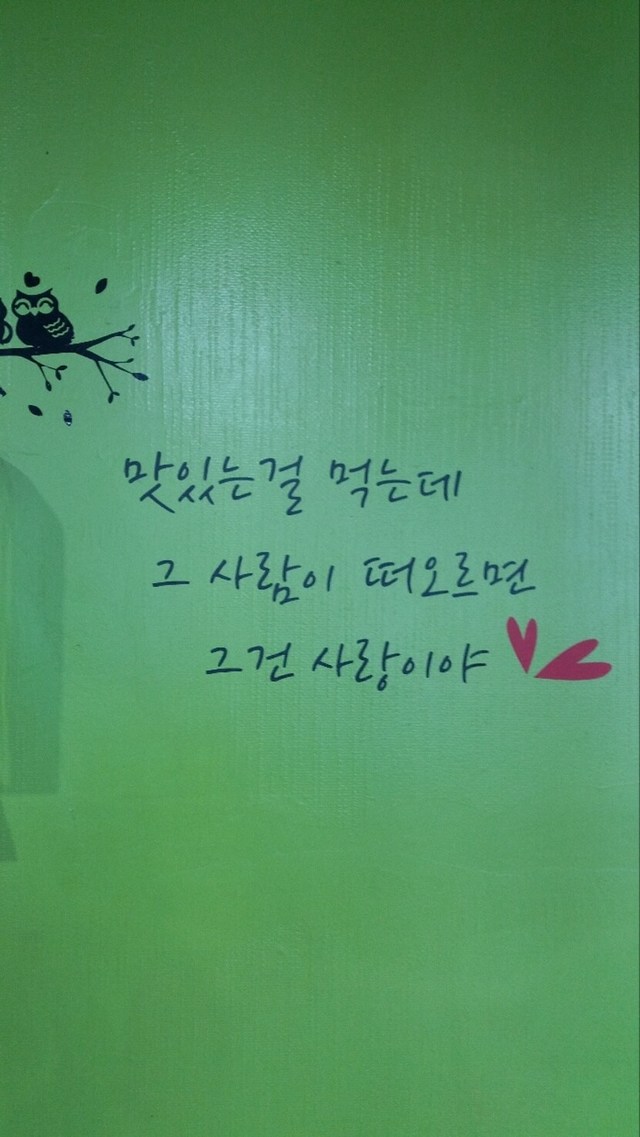 맛있는걸 먹는데
그 사람이 떠오르면
그건 사랑이야